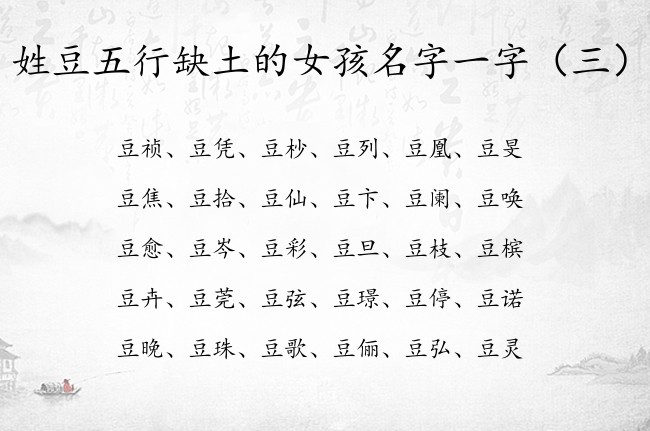 姓豆五行缺土的女孩名字一字（三）
豆祯、豆凭、豆杪、豆列、豆凰、豆旻
豆焦、豆拾、豆仙、豆卞、豆阑、豆唤
豆愈、豆岑、豆彩、豆旦、豆枝、豆槟
豆卉、豆莞、豆弦、豆璟、豆停、豆诺
豆晚、豆珠、豆歌、豆俪、豆弘、豆灵